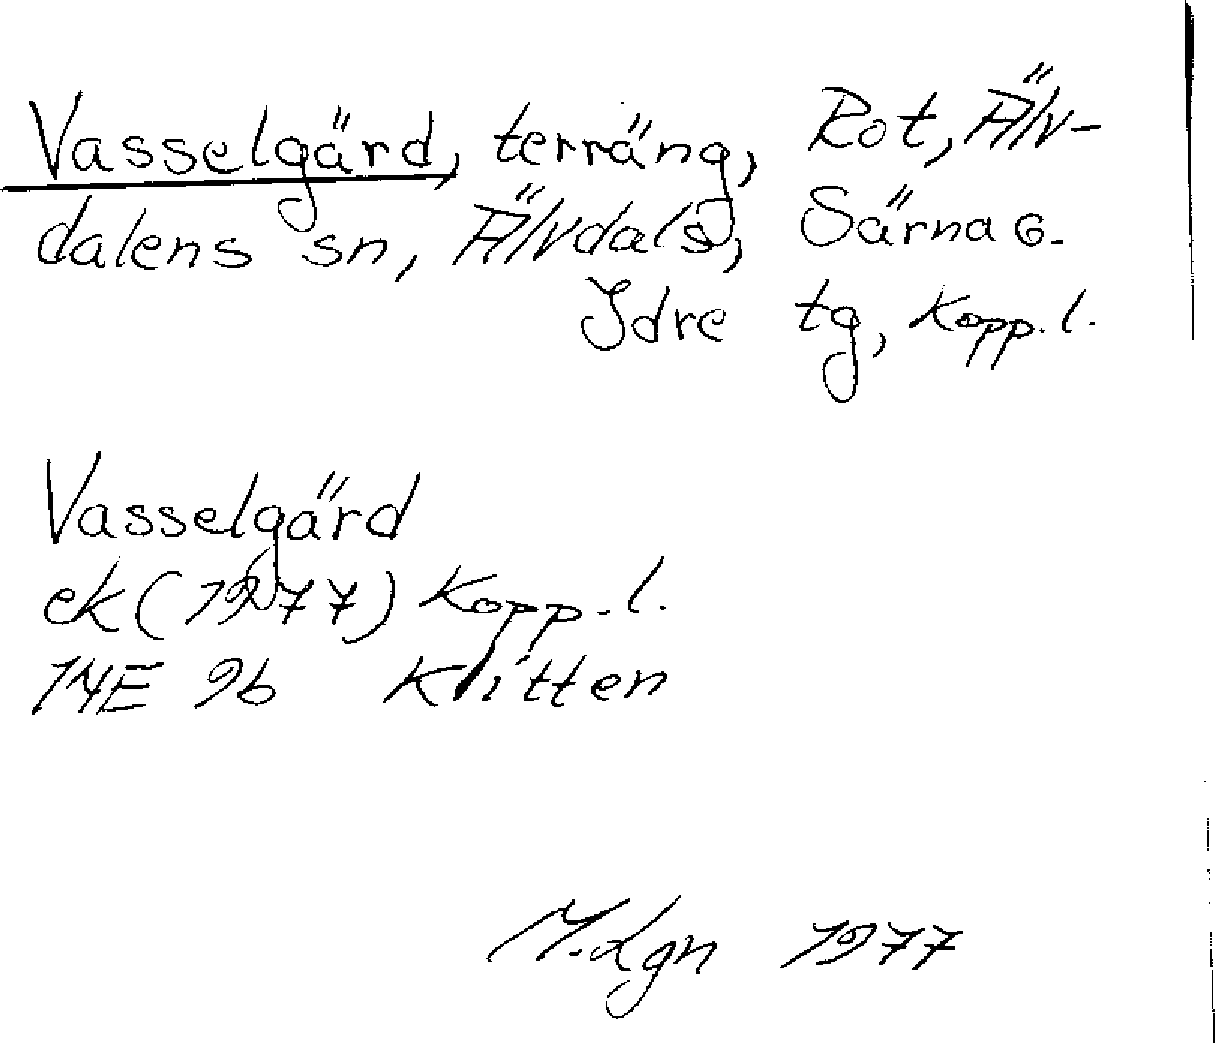 Vasselgärd, terräng, Rot, Älv-
dalens sn, Älvdals, Särna o.
Idre tg, Kopp. l.
Vasselgärd
ek (1977) Kopp. l.
14E 9b Klitten
M.Lgn 1977